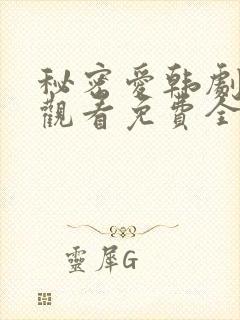 秘密愛韩劇
觀看免費全
靈犀G